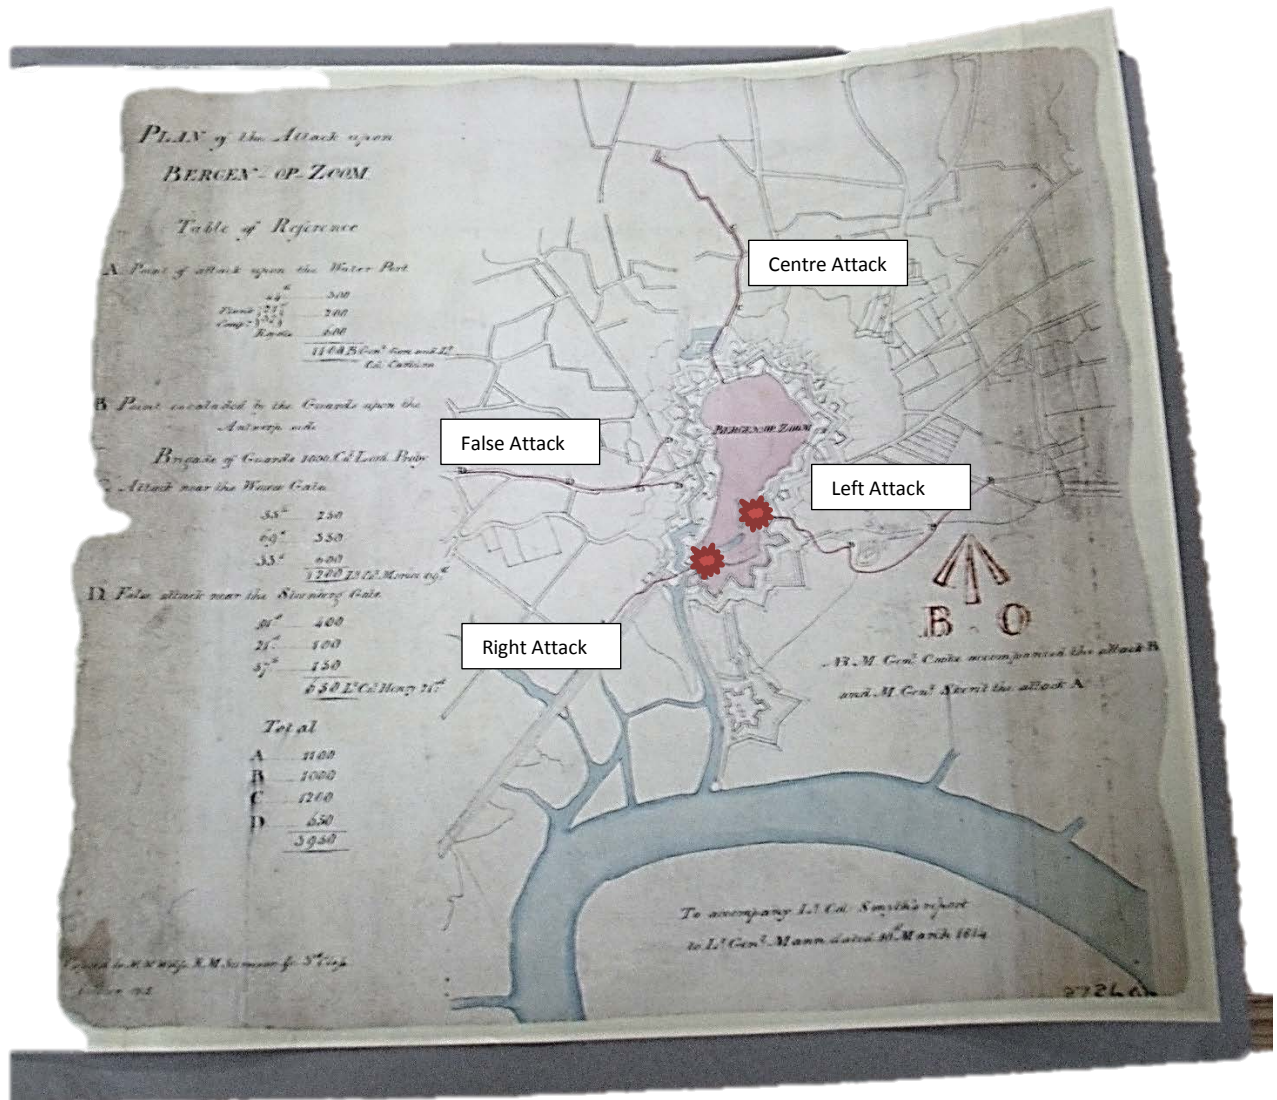 PLAN of the Attack upon
BERGEN-OP-ZOOM
Table of Reference
A Point of attack upon the Water Port
44th 300
Flank 21st 200
Comps 37th
Royals 600
1100 B. Genl Gore and Lt
Col. Carleton
B Point escaladed by the Guards upon the
Antwerp side
Brigade of Guards 1000 Col Lord Proby
C. Attack near the Wouw Gate
55th 250
69th 350
33d 600
1200 Lt Col. Morice 69th
D. False attack near the Steenberg Gate
91st 400
21st 100
37th 150
650 Lt Col Henry 21st
Total
A 1100
B 1000
C 1200
D 650
3950
Centre Attack
False Attack
BERGEN OP ZOOM
Left Attack
Right Attack
B O
NB. M. Genl Cooke accompanied the attack B
and M. Genl Skerrit the attack A
To accompany Lt Col Smyth's report
to Lt Genl Mann dated 10th March 1814